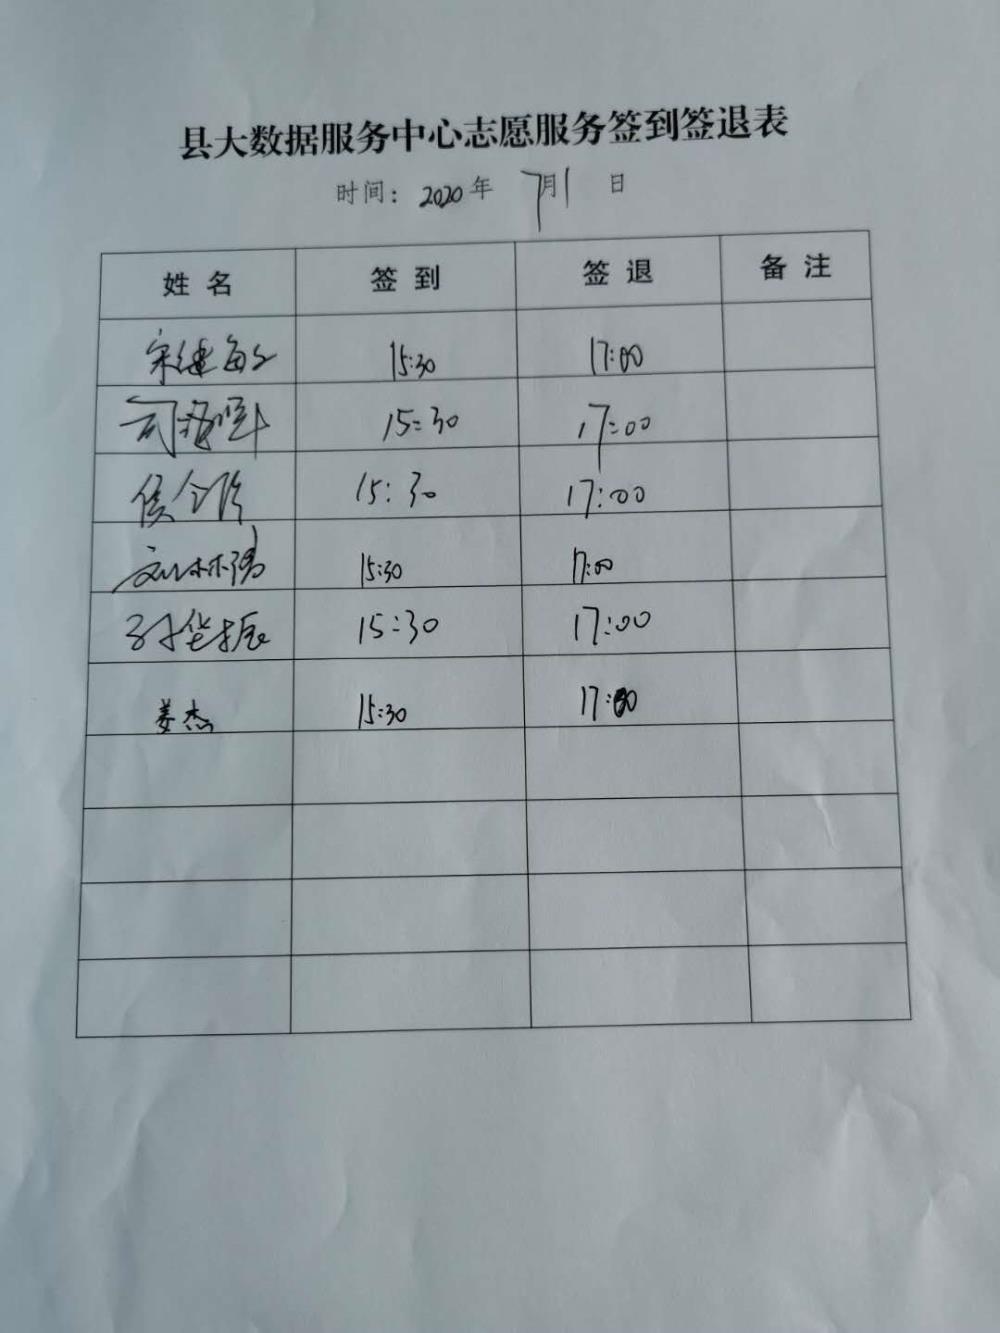 县大数据服务中心志愿服务签到签退表
时间：2020年 7月1 日
姓名 签到 签退 备注
宋健敏 15:30 17:00
司 15:30 17:00
侯 15:30 17:00
刘林涛 15:30 17:00
孙华振 15:30 17:00
姜杰 15:30 17:00